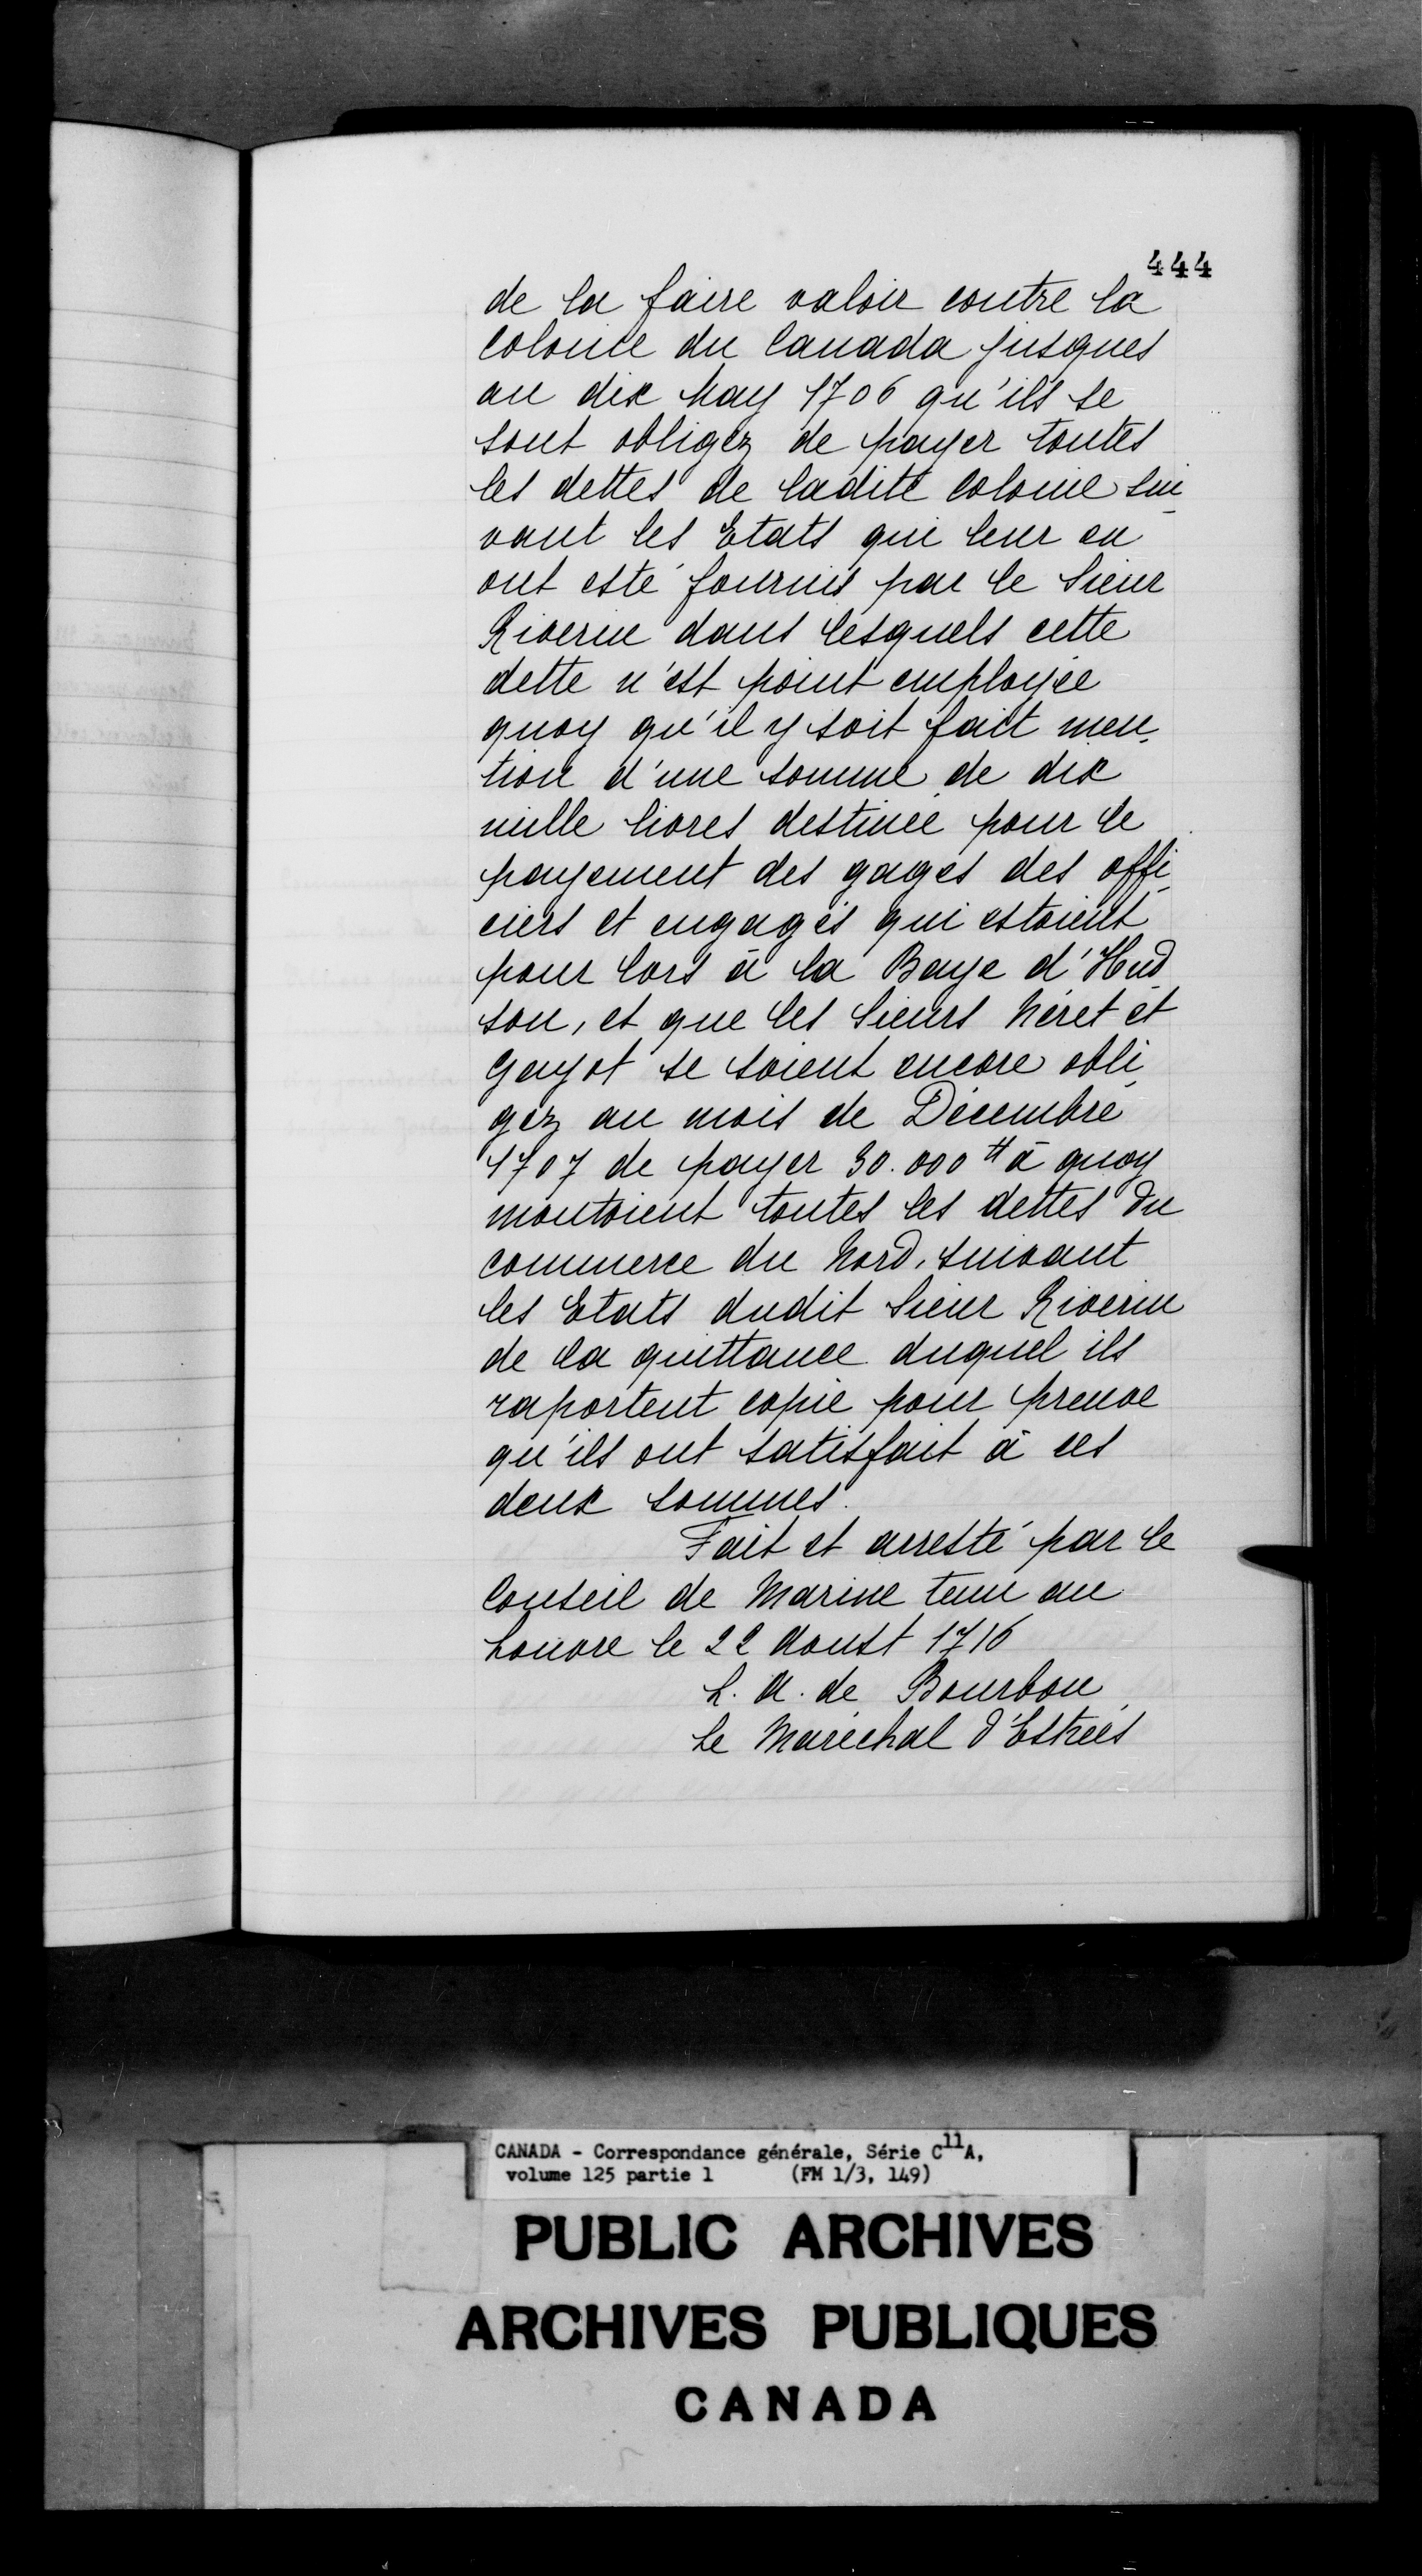 444
de la faire valoir contre la
Colonie du Canada jusques
au dix May 1706 qu'ils se
sont obligez de payer toutes
les dettes de ladite Colonie sui-
vant les Etats qui leur en
ont esté fournis par le Sieur
Riverin dans lesquels cette
dette n'est point employée
quoy qu'il y soit fait men-
tion d'une somme de dix
mille livres destinée pour le
payement des gages des offi-
ciers et engagés qui estoient
pour lors à la Baye d'Hud-
son, et que les Sieurs Néret et
Gayot se soient encore obli-
gez au mois de Décembre
1707 de payer 30.000 ₶ à quoy
montoient toutes les dettes du
commerce du Nord, suivant
les Etats dudit Sieur Riverin
de la quittance duquel ils
raportent copie pour preuve
qu'ils ont satisfait à ces
deux sommes.
Fait et arresté par le
Conseil de Marine tenu au
Louvre le 22 Aoust 1716
L. A. de Bourbon
Le Maréchal d'Estrées
CANADA - Correspondance générale, Série C11A,
volume 125 partie 1 (FM 1/3, 149)
PUBLIC ARCHIVES
ARCHIVES PUBLIQUES
CANADA